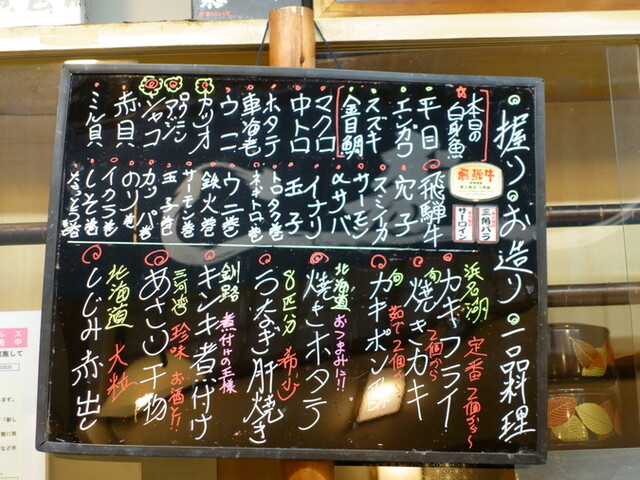 握り。お造り。一品料理
本日の
白身魚
平目
エンガワ
スズキ
金目鯛
マグロ
中トロ
ホタテ
車海老
ウニ
カツオ
アジ
シャコ
赤貝
ミル貝
飛騨牛
飛騨牛
三角バラ
サーロイン
穴子
スミイカ
サーモン
〆サバ
イナリ
玉子
トロタク巻
ネギトロ巻
ウニ巻
鉄火巻
サーモン巻
玉子巻
カッパ巻
のり巻
イクラ巻
しそ巻
なっとう巻
浜名湖
カキフライ
定番 2個から〜
旬
焼きカキ
2個から
旬
カキポン酢
茹で2個〜
北海道
おつまみに!!
焼きホタテ
8匹分
希少
うなぎ肝焼き
釧路
煮付けの王様
キンキ煮付け
三河湾
珍味
お酒と!!
あさり干物
北海道
大粒
しじみ赤出し